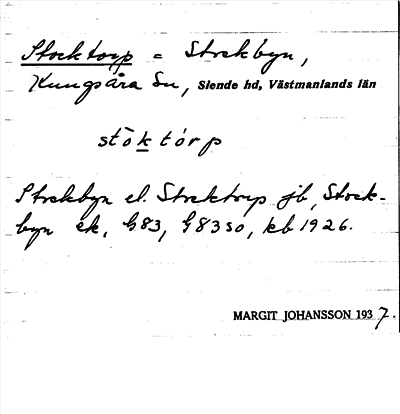 Stocktorp = Stockbyn,
Kungsåra Sn, Siende hd, Västmanlands län
stòktórp
Stockbyn el. Stocktorp jb, Stock-
byn ek, G83, G83SO, kb 1926.
MARGIT JOHANSSON 1937.